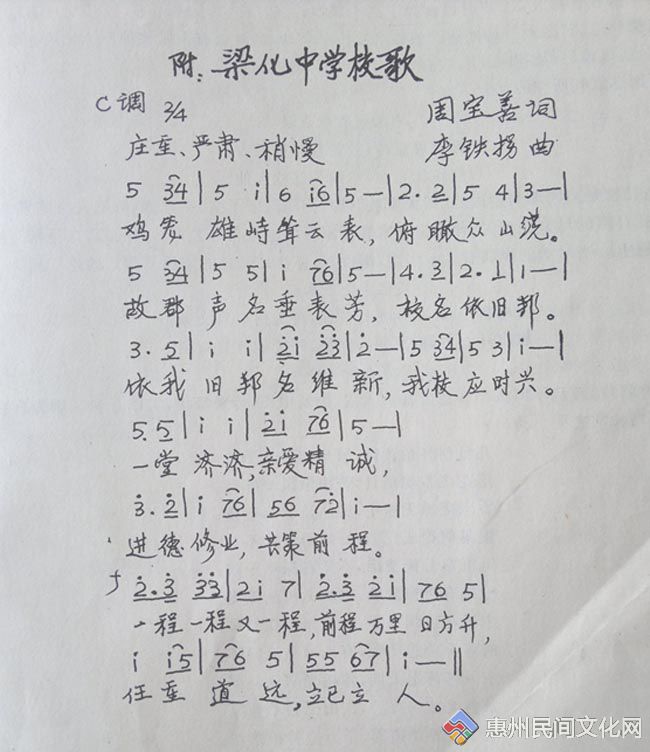 附：梁化中学校歌
C调 2/4 周宝善词
庄重、严肃、稍慢 李铁拐曲
5 34 | 5 i̇ | 6 i̇6 | 5 — | 2. 2 | 5 4 | 3 — |
鸡 雄峙耸云表，俯瞰众山谎。
5 34 | 5 5 | i̇ 76 | 5 — | 4. 3 | 2. 1 | 1 — |
故郡声名垂表芳，校名依旧邦。
3. 5 | i̇ i̇ | 2̇i̇ 2̇3̇ | 2̇ — | 5 34 | 5 3 | i̇ — |
依我旧邦名维新，我校应时兴。
5. 5 | i̇ i̇ | 2̇i̇ 76 | 5 — |
一堂济济，亲爱精诚，
3̇. 2̇ | i̇ 76 | 56 72̇ | i̇ — |
进德修业，共策前程。
2̇. 3̇ 3̇3̇ | 2̇i̇ 7 | 2̇. 3̇ 2̇i̇ | 76 5 |
一程一程又一程，前程万里日方升，
i̇ i̇5 | 76 5 | 55 67 | i̇ — ‖
任重道远，立己立人。
惠州民间文化网